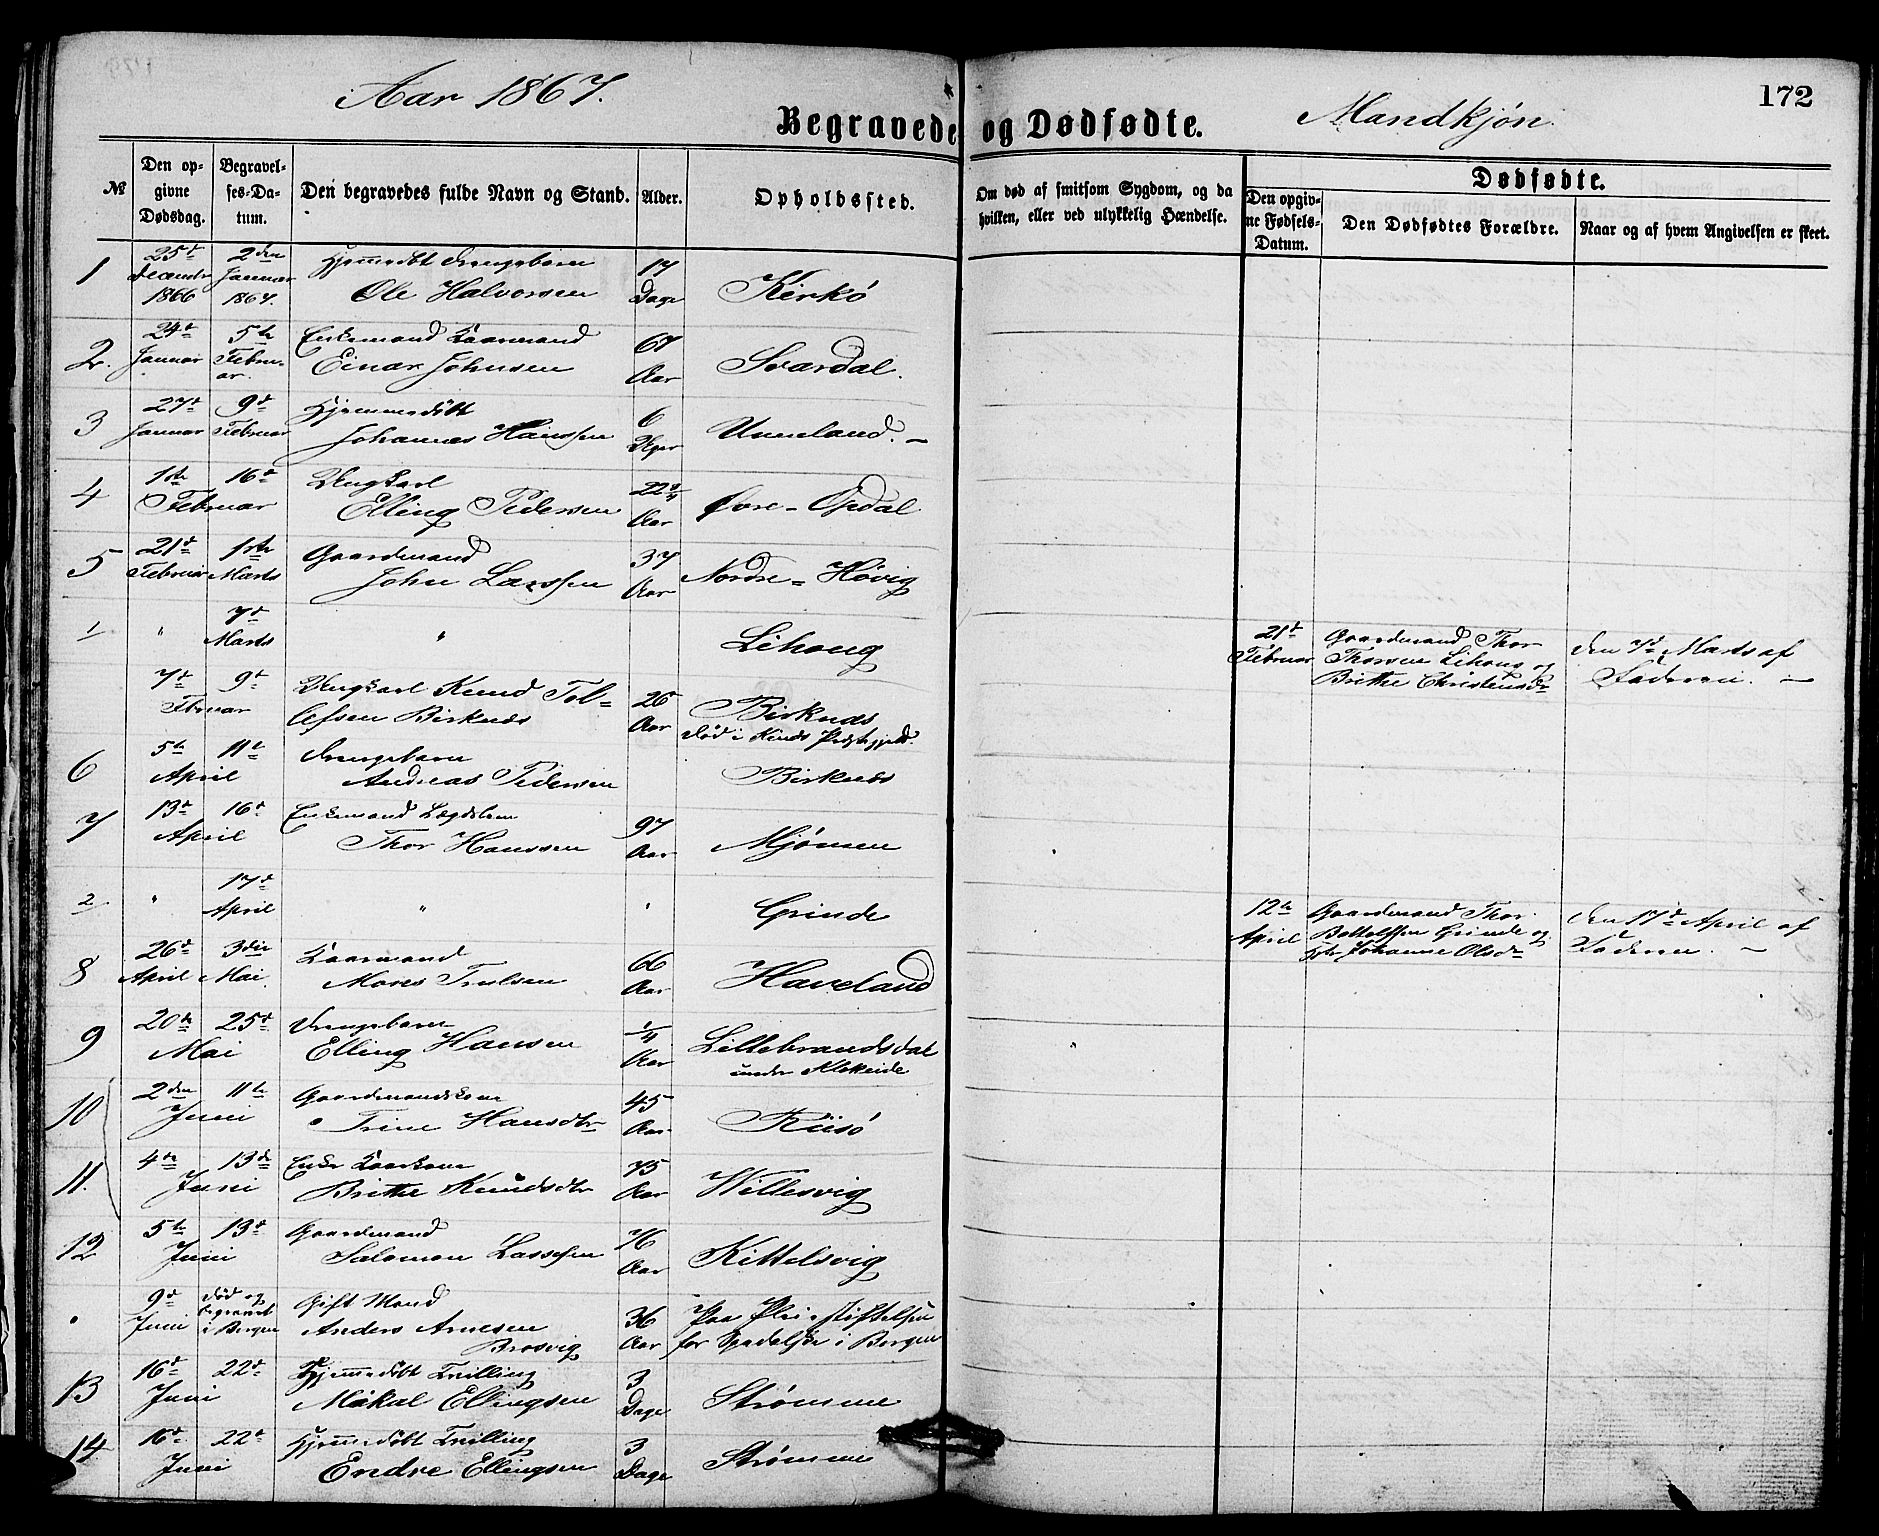 Aar 1867.
Begravede og Dødfødte.
Mandkjøn.
172
№
Den opgivne Dødsdag.
Begravelses-Datum.
Den begravedes fulde Navn og Stand.
Alder.
Opholdssted.
Om død af smitsom Sygdom, og da hvilken, eller ved ulykkelig Hændelse.
Dødfødte.
Den opgivne Fødsels-Datum.
Den Dødfødtes Forældre.
Naar og af hvem Angivelsen er skeet.
1 25de Decembr 1866 2den Januar 1867. Hjemmedøbt Drengebarn
Ole Halvorsen 17 Dage Kirkø
2. 24de Januar 5te Februar. Enkemand Kaarmand
Einar Johnsen 67 Aar Svardal.
3 27de Januar 9de Februar Hjemmedøbt
Johannes Hanssen 6 Uger Unneland.
4 1ste 16de Februar Ungkarl
Elling Pedersen 22 Aar Øvre-Opdal
5 21de Februar 1ste Marts Gaardmand
John Larssen 37 Aar Nordre-Høvig
1 " 7de Marts " Lihoug 21de Februar Gaardmand Thor
Thorsen Lihoug og
Brithe Christensdr
den 7de Marts af
Faderen.
7de 9de Februar Ungkarl Knud Tol-
lefsen Birknæs 26 Aar Birknæs
død i Kinds Præstegjeld.
6 5te 11te April Drengebarn
Andreas Pedersen Birknæs
7 13de 16de April Enkemand Lægdslem
Thor Hanssen 97 Aar Mjømen
2 " 17de April " " Grinde 12te April Gaardmand Thor
Bottolfsen Grinde og
Johanne Olsdr
den 17de April af
Faderen.
8 26de April 3die Mai Kaarmand
Mons Trulsen 66 Aar Haveland
9 20de 25de Mai Drengebarn
Elling Hansen 1/4 Aar Lillebrandsdal
under Klokeide
10 2den 11te Juni Gaardmandskone
Trine Hansdtr 45 Aar Riisø
11. 4de 13de Juni Enke Kaarkone
Brithe Knudsdtr 75 Aar Willesvig
12 5te 13de Juni Gaardmand
Salomon Lassesen 76 Aar Kittelsvig
9de Juni død og begravet i Bergen Gift Mand
Anders Arnesen
Brosvig 36 Aar Paa Pleiestiftelsen
for Spedalske i Bergen
13 16de 22de Juni Hjemmedøbt Tvilling
Mikal Ellingsen 3 Dage Strømme
14 16de 22de Juni Hjemmedøbt Tvilling
Endre Ellingsen 3 Dage Strømme